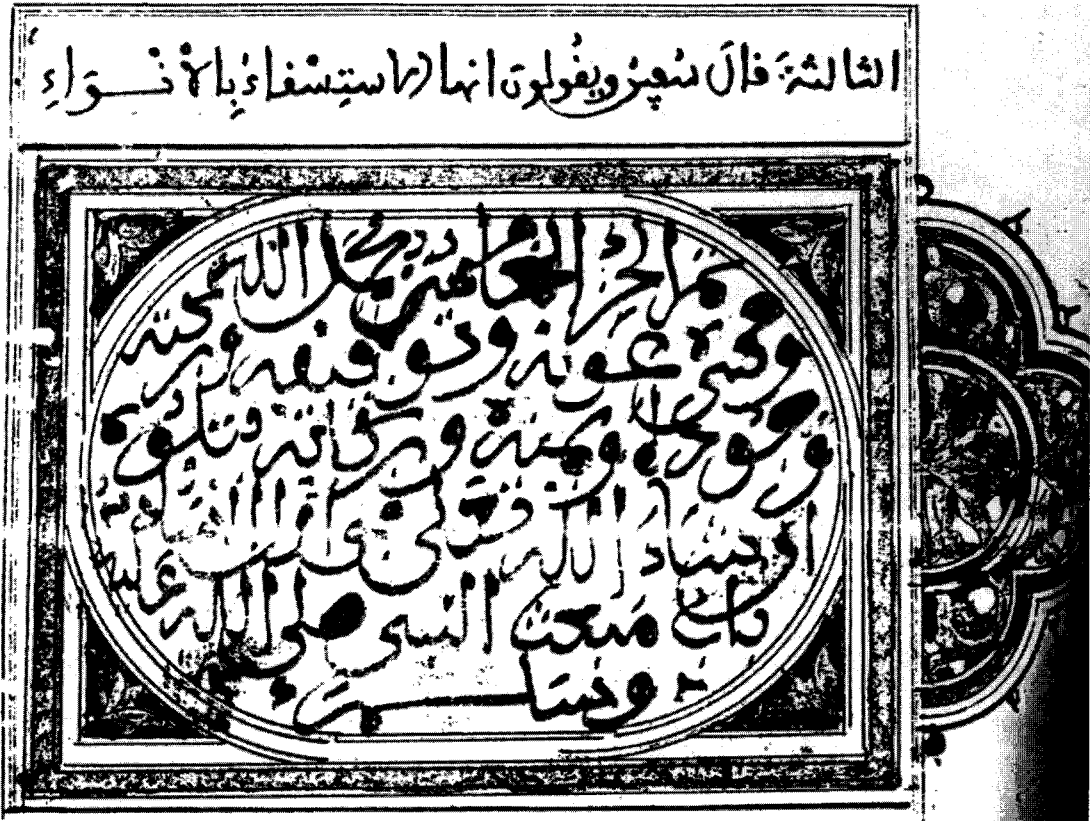 الثالثة قال سفين ويقولون انها الاستسقاء بالانواء
كمل الجزء الخامس بحمد الله
وحسن عونه وتوفيقه ورحمته
وحوله ويمنه وبركاته ويتلوه
ان شاء الله تعلى في الثالث
باب مبعث النبي صلى الله عليه
وسلم